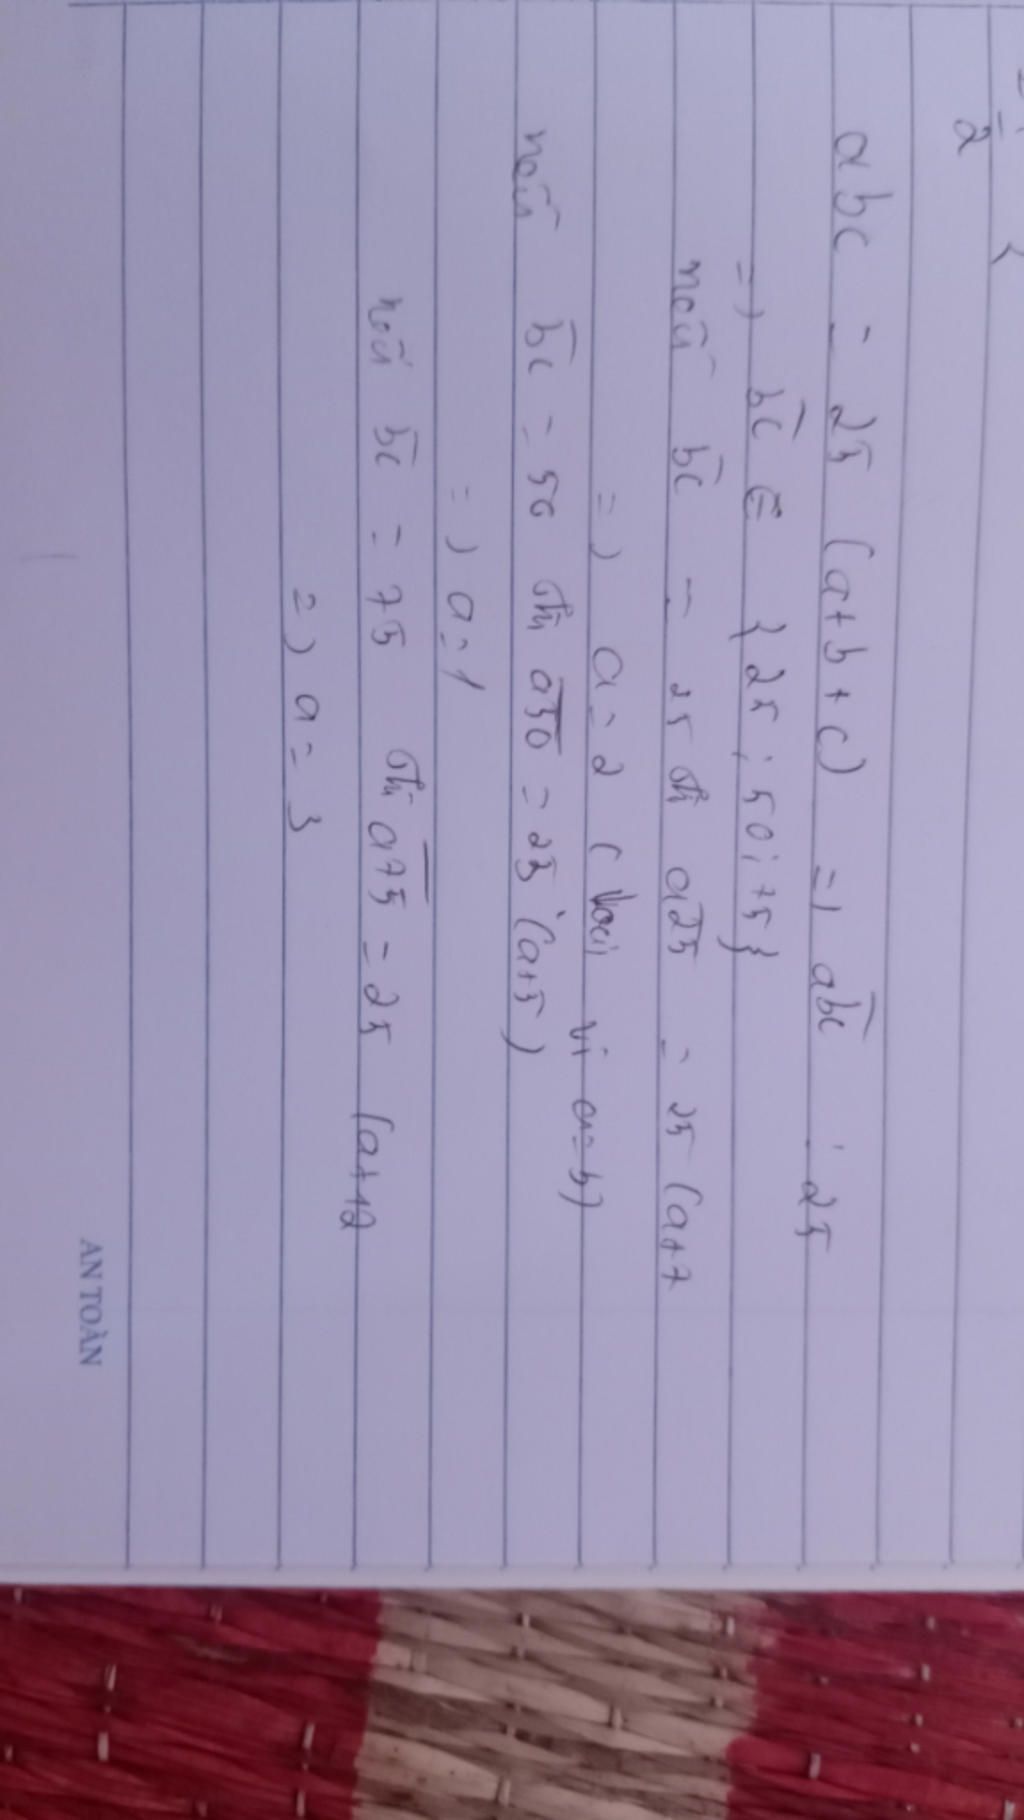 2
abc = 25 (a+b+c) => abc ⋮ 25
=> bc ∈ {25; 50; 75}
nếu bc = 25 thì a25 = 25 (a+7
=> a = 2 (loại vì a=b)
nếu bc = 50 thì a50 = 25 (a+5)
=> a=1
nếu bc = 75 thì a75 = 25 (a+12
=> a = 3
AN TOÀN